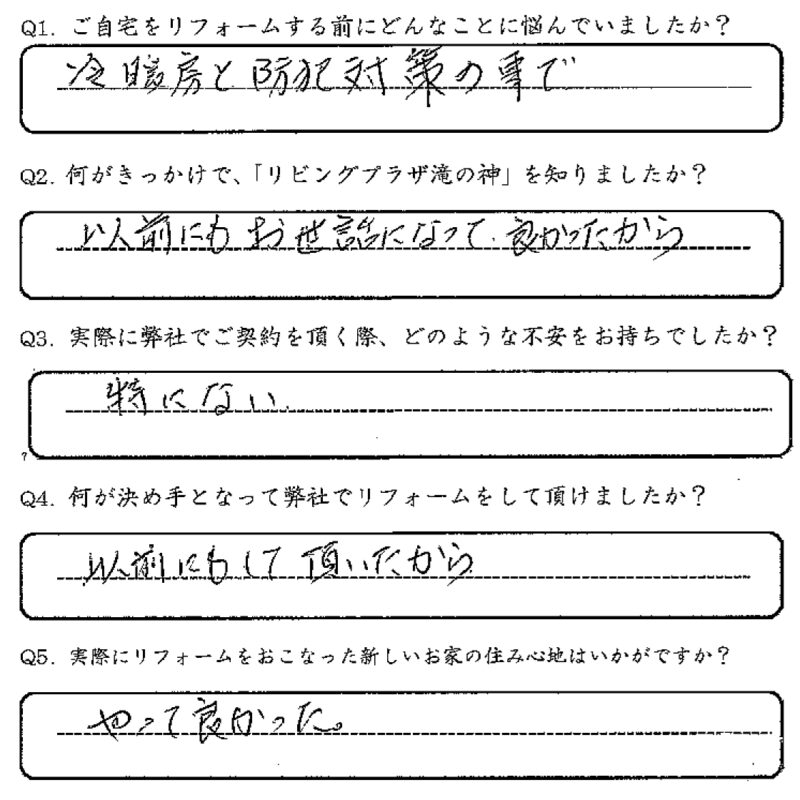 Q1. ご自宅をリフォームする前にどんなことに悩んでいましたか?
冷暖房と防犯対策の事で
Q2. 何がきっかけで、「リビングプラザ滝の神」を知りましたか?
以前にもお世話になって、良かったから
Q3. 実際に弊社でご契約を頂く際、どのような不安をお持ちでしたか?
特にない
Q4. 何が決め手となって弊社でリフォームをして頂けましたか?
以前にもして頂いたから
Q5. 実際にリフォームをおこなった新しいお家の住み心地はいかがですか?
やって良かった。